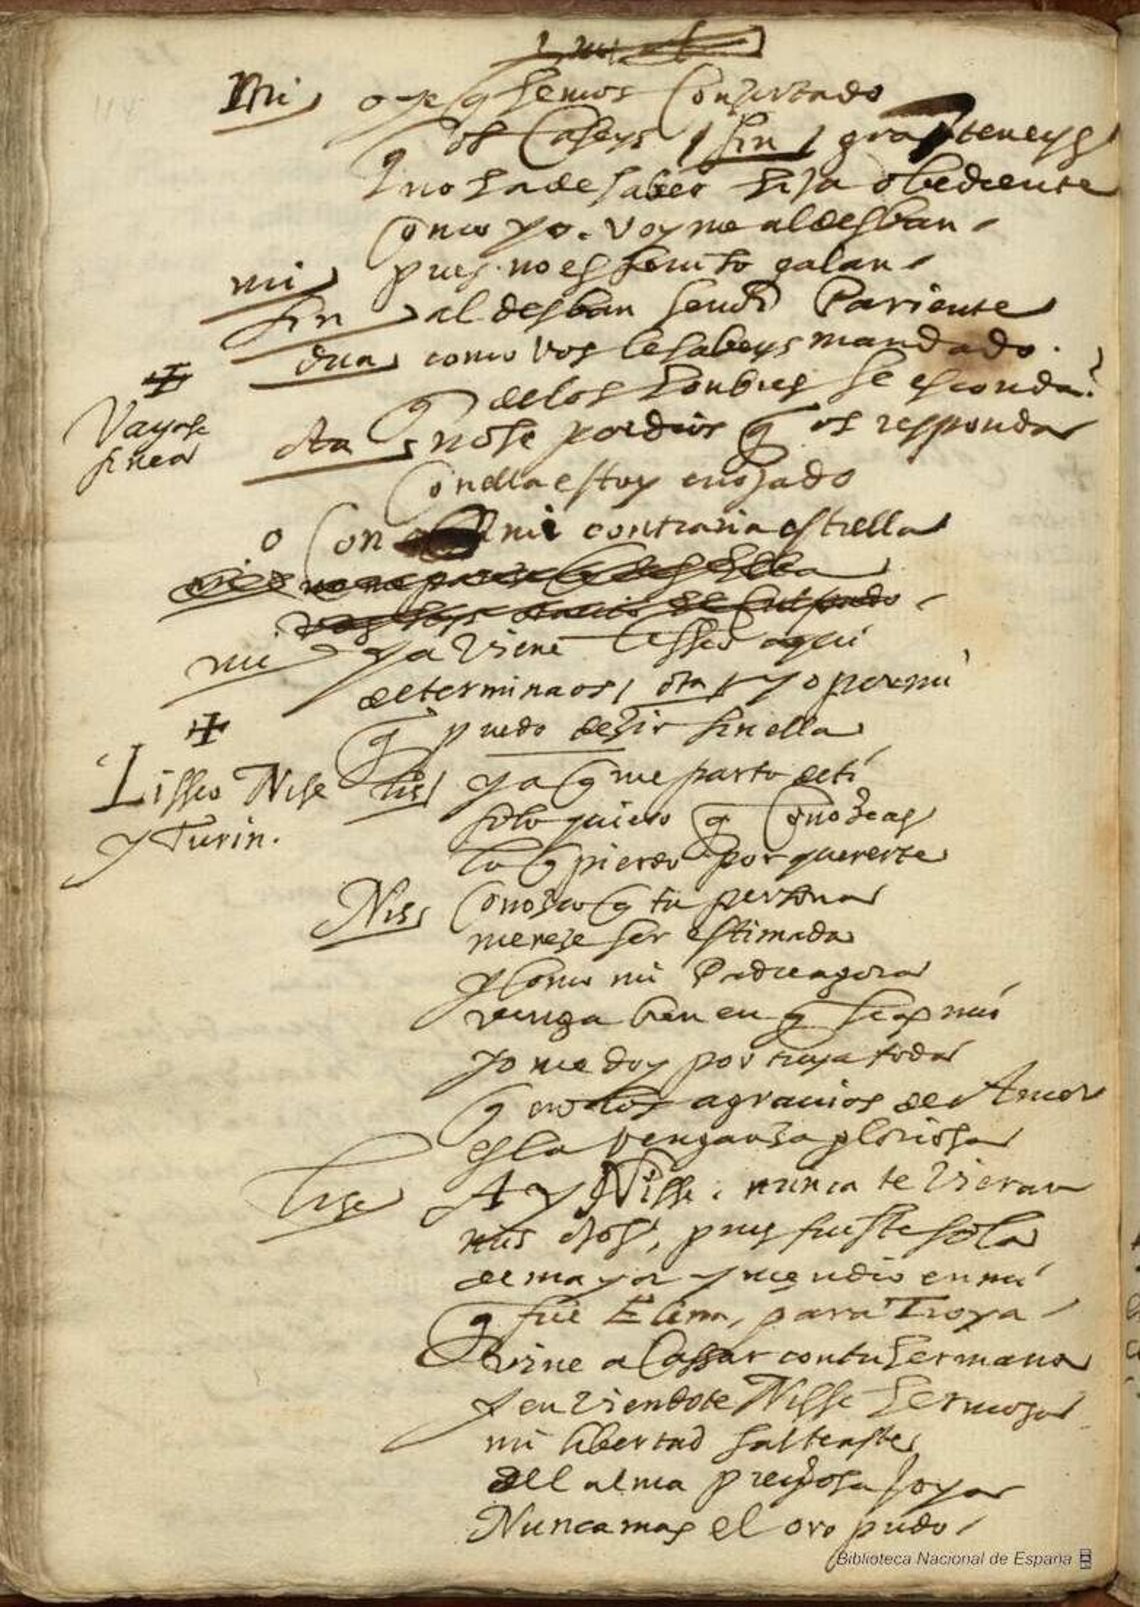 Mi) oye q hemos Conzertado
q os Caseys / fin / gra teneys
q no ha de haber hija obediente
Como yo. voyme al desban
mi) pues no es feni to galan
fin) al desban señor Pariente
dua) como vos lo habeys mandado.
q de los honbres se esconda?
Vayase
finea
ota) no se por dios q os responda
Con ella estoy enojado
o Con mi contraria estrella
mi) ya viene Lisseo aqui
determinaos / ota / yo por mi
q puedo dezir sin ella
Lisseo Nise
y Turin.
lis) ya q me parto de ti
solo quiero q Conozcas
lo q pierdo por quererte
Nis) Conozco q tu persona
mereze ser estimada
y Como mi Padre agora
venga bien en q seas mio
yo me doy por tuya toda
q en los agrauios de Amor
es la venganza gloriosa
lise) Ay Nisse, nunca te vieran
mis ojos, pues fuiste sola
de mayor yncendio en mi
q fue Elena, para Troya
vine a Cassar con tu hermana
y en viendote Nisse hermosa
mi libertad salteaste
del alma preziosa joya
Nunca mas el oro pudo
Biblioteca Nacional de España